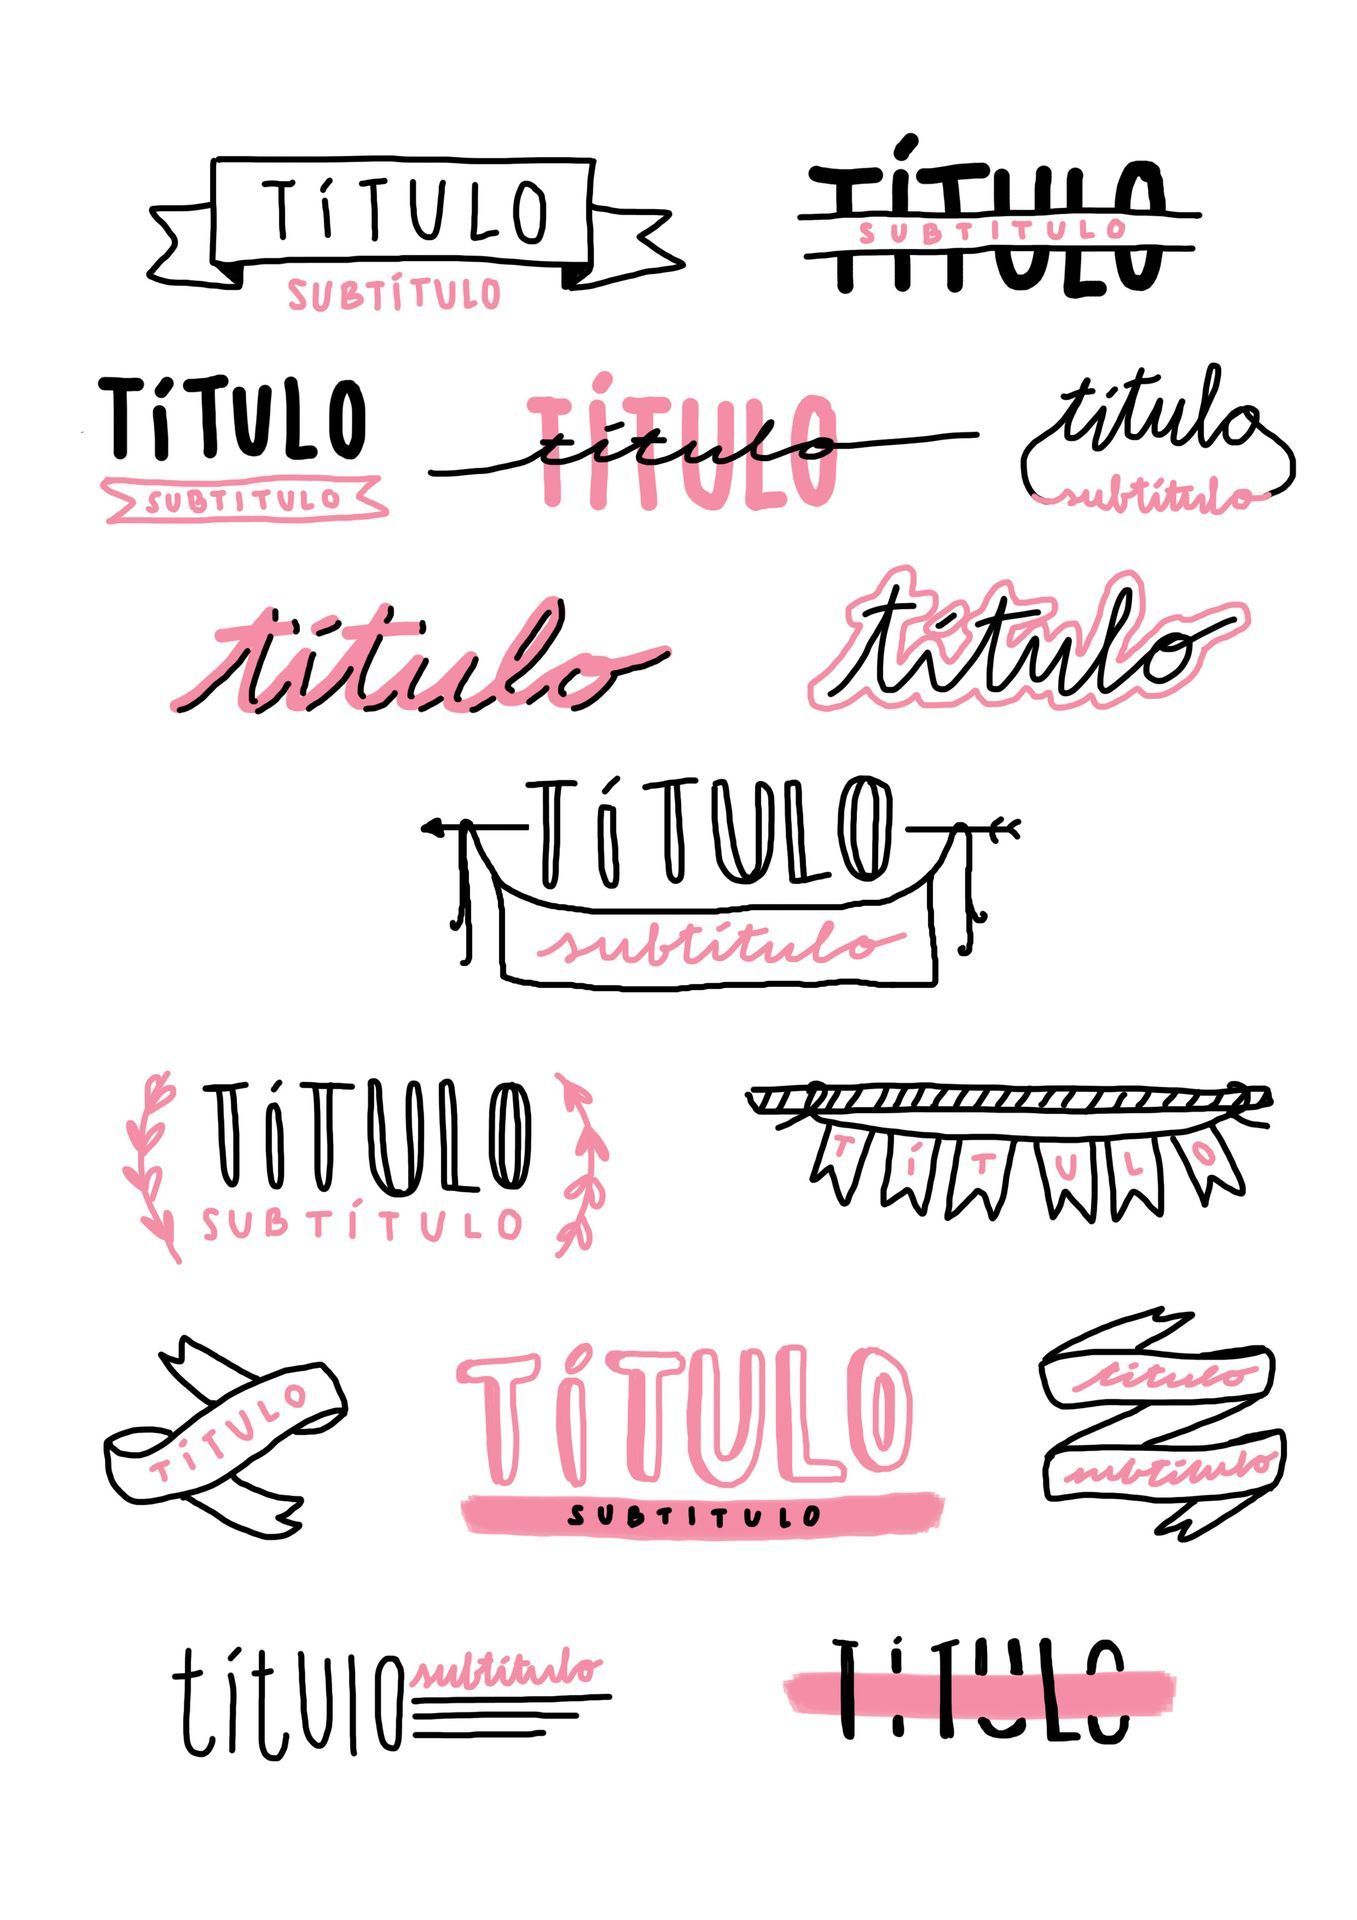 TíTULO
SUBTÍTULO
TÍTULO
SUBTITULO
TíTULO
SUBTITULO
TÍTULO
título
título
subtítulo
título
título
TÍTULO
subtítulo
TÍTULO
SUBTÍTULO
TÍTULO
TÍTULO
TÍTULO
SUBTITULO
título
subtítulo
título
subtítulo
TíTULO